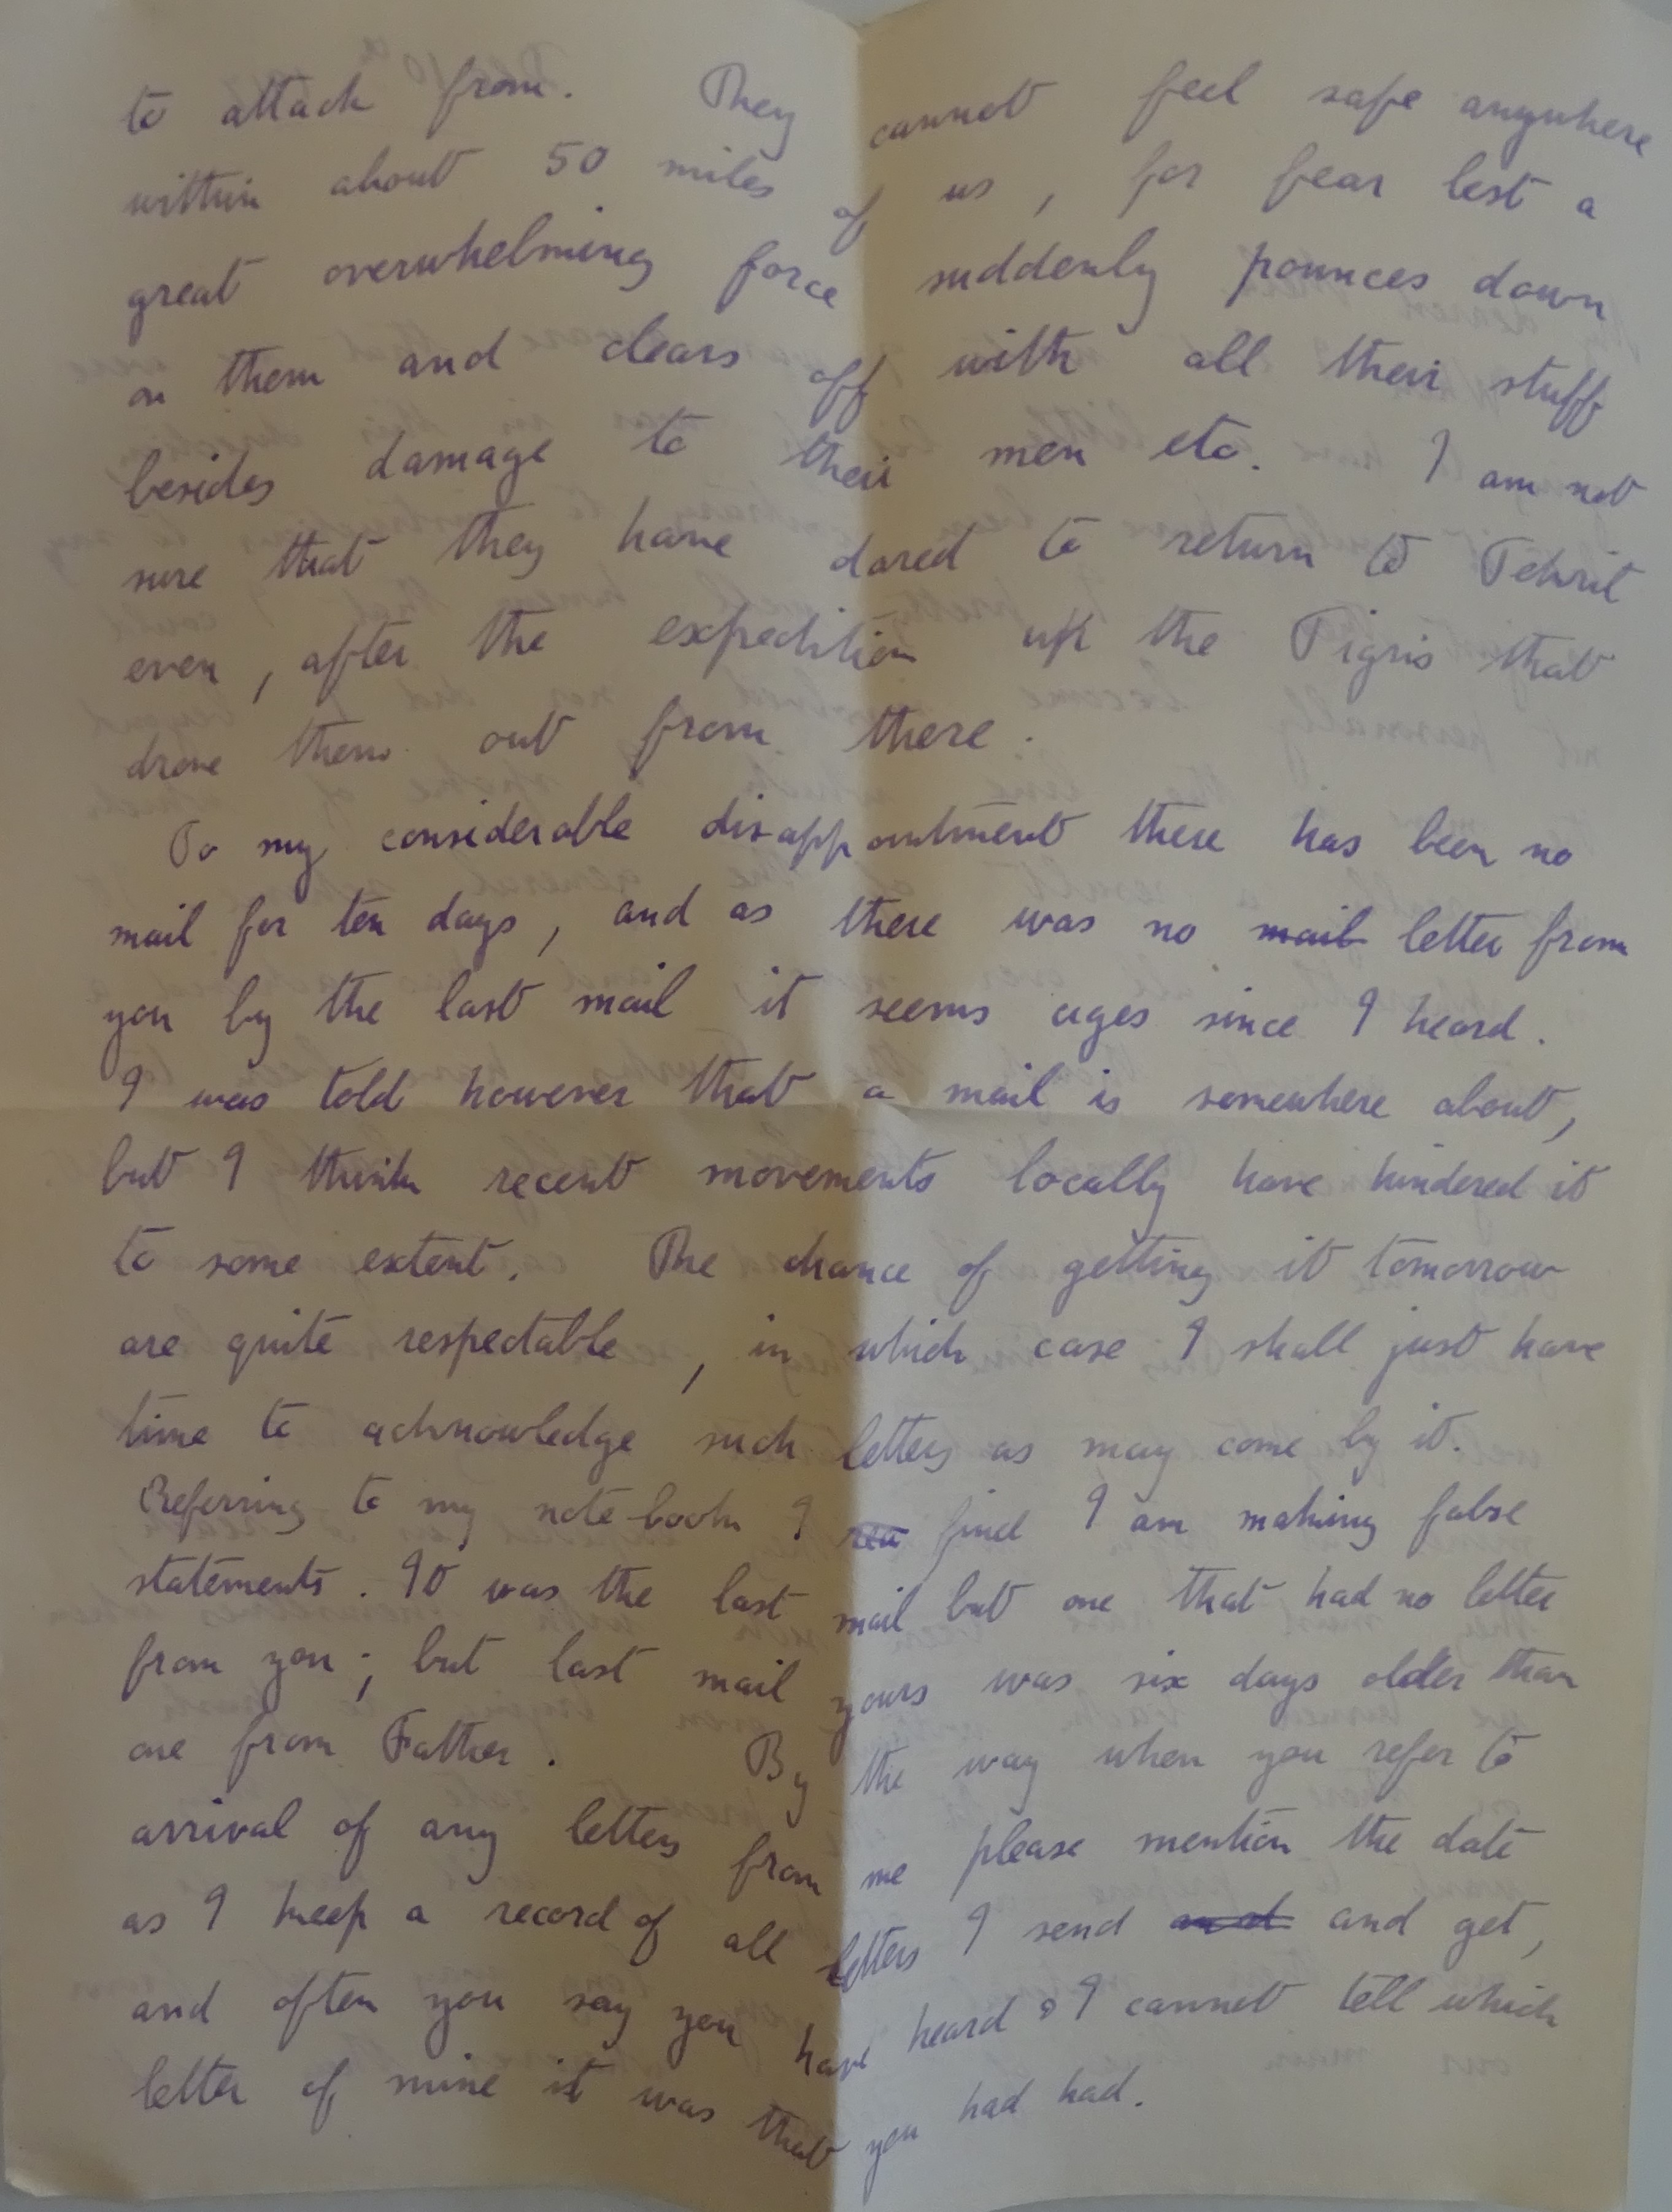 to attack from. They cannot feel safe anywhere
within about 50 miles of us, for fear lest a
great overwhelming force suddenly pounces down
on them and clears off with all their stuff
besides damage to their men etc. I am not
sure that they have dared to return to Tekrit
even, after the expedition up the Tigris that
drove them out from there.
To my considerable disappointment there has been no
mail for ten days, and as there was no mail letter from
you by the last mail it seems ages since I heard.
I was told however that a mail is somewhere about,
but I think recent movements locally have hindered it
to some extent. The chance of getting it tomorrow
are quite respectable, in which case I shall just have
time to acknowledge such letters as may come by it.
Referring to my note-book I find I am making false
statements. It was the last mail but one that had no letter
from you; but last mail yours was six days older than
one from Father. By the way when you refer to
arrival of any letters from me please mention the date
as I keep a record of all letters I send and and get,
and often you say you have heard & I cannot tell which
letter of mine it was that you had had.